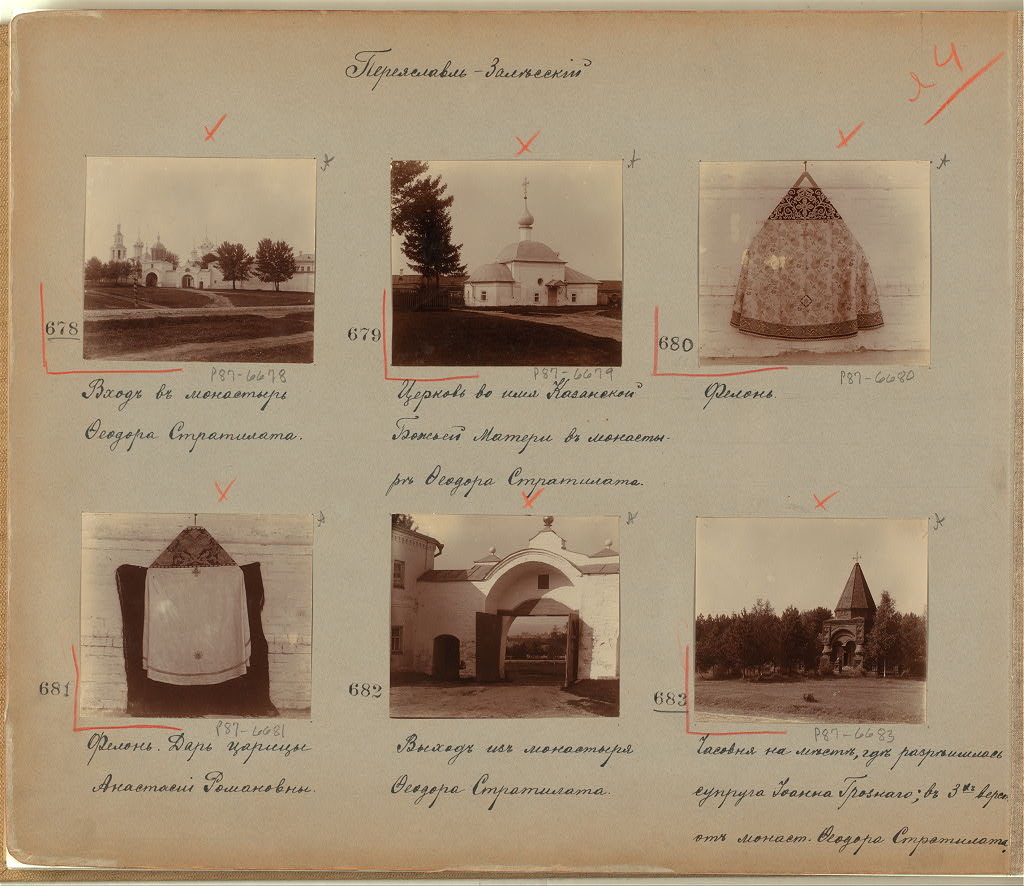 Переяславль-Залѣсскій
л 4
678
P87-6678
Входъ въ монастырь
Ѳеодора Стратилата.
679
P87-6679
Церковь во имя Казанской
Божьей Матери въ монасты-
рѣ Ѳеодора Стратилата.
680
P87-6680
Фелонь.
681
P87-6681
Фелонь. Даръ царицы
Анастасіи Романовны.
682
Выходъ изъ монастыря
Ѳеодора Стратилата.
683
P87-6683
Часовня на мѣстѣ, гдѣ разрѣшилась
супруга Іоанна Грознаго; въ 3хъ верс.
отъ монаст. Ѳеодора Стратилата.